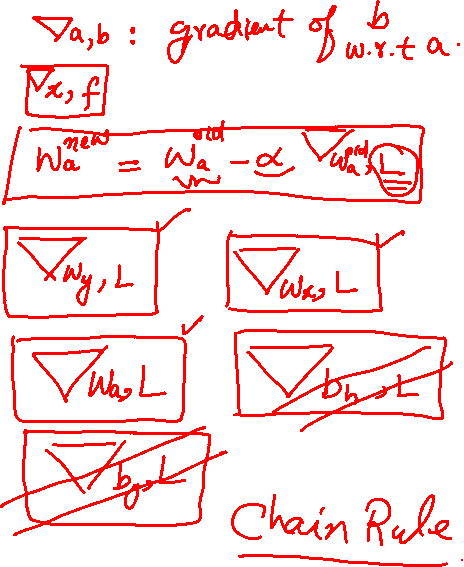 ∇a,b : gradient of b w.r.t a.
∇x, f
Wa^new = Wa^old - α ∇Wa^old, L
∇Wy, L ∇Wx, L
∇Wa, L ∇bh, L
∇by, L
Chain Rule.